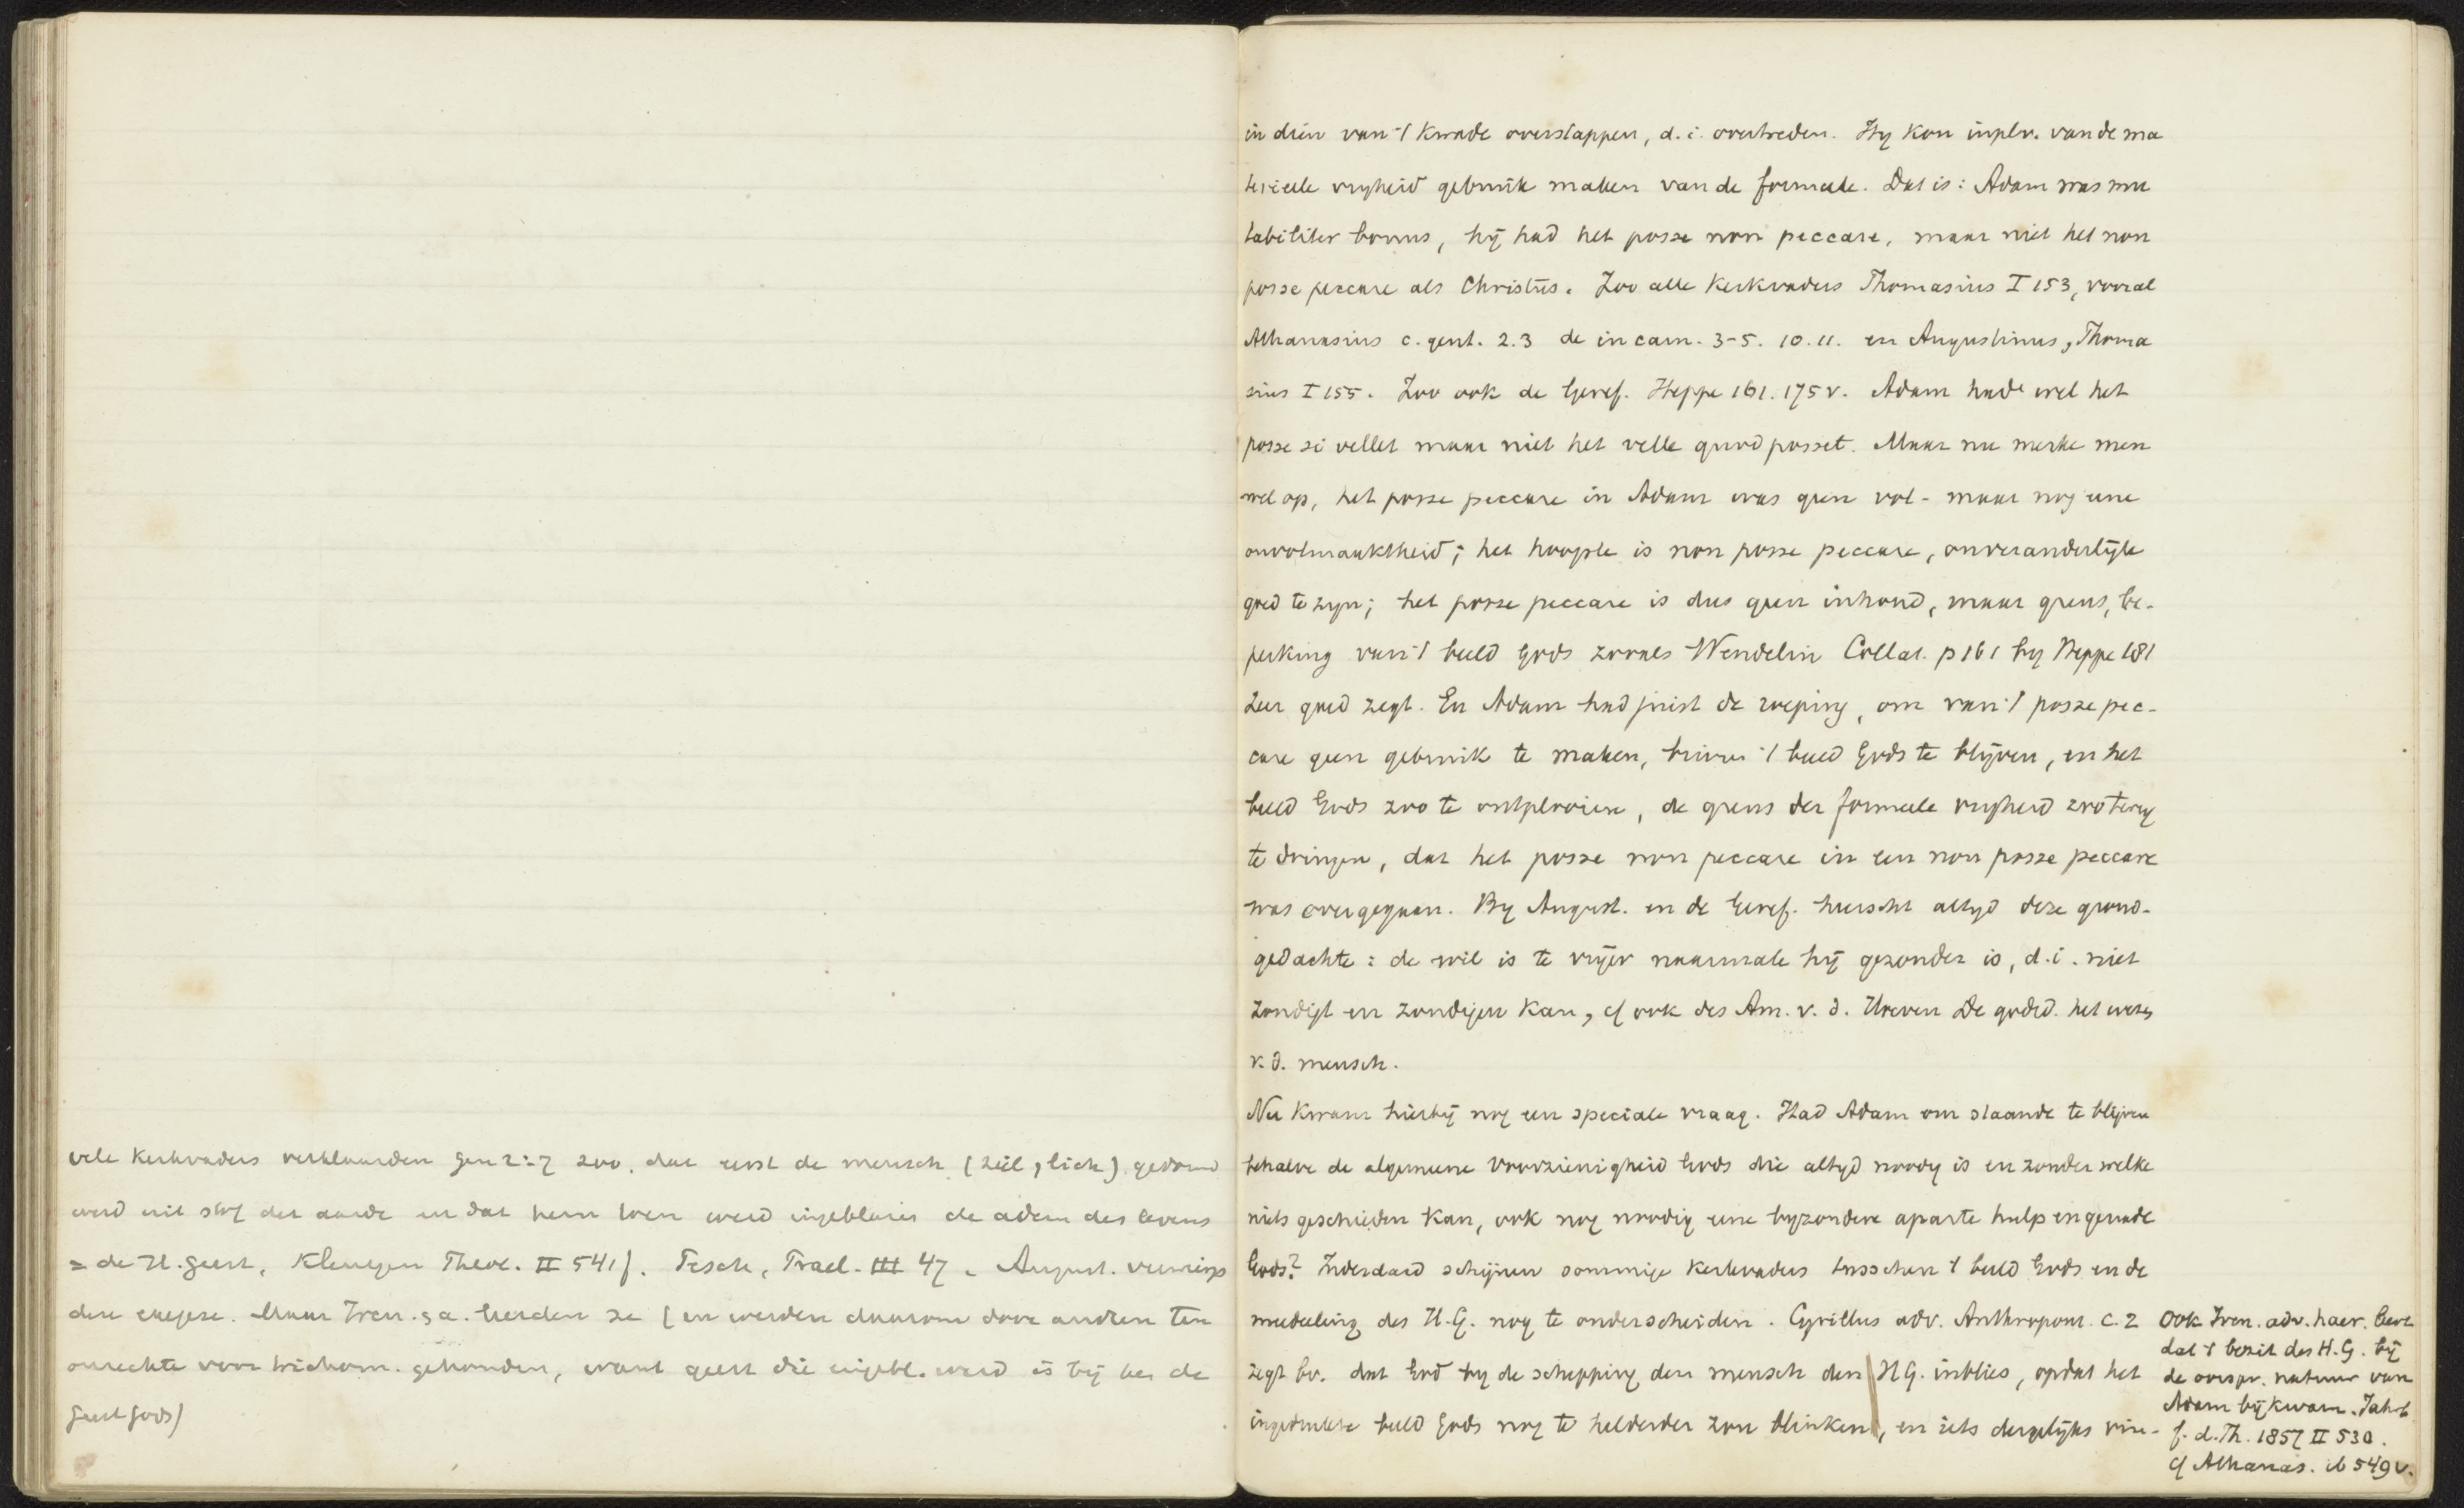 vele Kerkvaders verklaarden Gen 2:7 zoo, dat eerst de mensch (ziel, lich) gevormd
werd uit stof der aarde en dat hem toen werd ingeblazen de adem des levens
= de H. Geest, Kleutgen Theol. II 541f. Pesch, Prael. III 47. August. verwierp
deze exegese. Maar Iren. s.a. leerden ze (en werden daarom door anderen ten
onrechte voor trichotom. gehouden, want geest die ingebl. werd is bij hen de
Geest Gods)
in dien van 't kwade overstappen, d.i. overtreden. Hy kon inplv. van de ma
terieele vryheid gebruik maken van de formeele. Dat is: Adam was mu
tabiliter bonus, hij had het posse non peccare, maar niet het non
posse peccare als Christus. Zoo alle Kerkvaders Thomasius I 153, vooral
Athanasius c. gent. 2.3 de incarn. 3-5. 10.11. en Augustinus, Thoma
sius I 155. Zoo ook de Geref. Heppe 161. 175 v. Adam had wel het
posse si vellet maar niet het velle quod posset. Maar nu merke men
wel op, het posse peccare in Adam was geen vol- maar nog eene
onvolmaaktheid; het hoogste is non posse peccare, onveranderlijk
goed te zyn; het posse peccare is dus geen inhoud, maar grens, be-
perking van 't beeld Gods zooals Wendelin Collat. p 161 by Heppe 181
zeer goed zegt. En Adam had juist de roeping, om van 't posse pec-
care geen gebruik te maken, binnen 't beeld Gods te blijven, en het
beeld Gods zoo te ontplooien, de grens der formeele vryheid zoo terug
te dringen, dat het posse non peccare in een non posse peccare
was overgegaan. By August. en de Geref. heerscht altyd deze grond-
gedachte: de wil is te vrijer naarmate hij gezonder is, d.i. niet
zondigt en zondigen kan, cf ook des Am. v. d. Hoeven De godsd. het wezen
v. d. mensch.
Nu kwam hierbij nog een speciale vraag. Had Adam om staande te blijven
behalve de algemeene voorzienigheid Gods die altyd noodig is en zonder welke
niets geschieden kan, ook nog noodig eene byzondere aparte hulp en genade
Gods? Inderdaad schijnen sommige Kerkvaders tusschen 't beeld Gods en de
mededeeling des H.G. nog te onderscheiden. Cyrillus adv. Anthropom. c. 2
zegt bv. dat God by de schepping den mensch den H G. inblies, opdat het
ingedrukte beeld Gods nog te helderder zou blinken, en iets dergelijks vin-
Ook Iren. adv. haer. leert
dat 't bezit des H.G. bij
de oorspr. natuur van
Adam bij kwam. Jahrb
f. d. Th. 1857 II 530.
cf Athanas. ib 549 v.